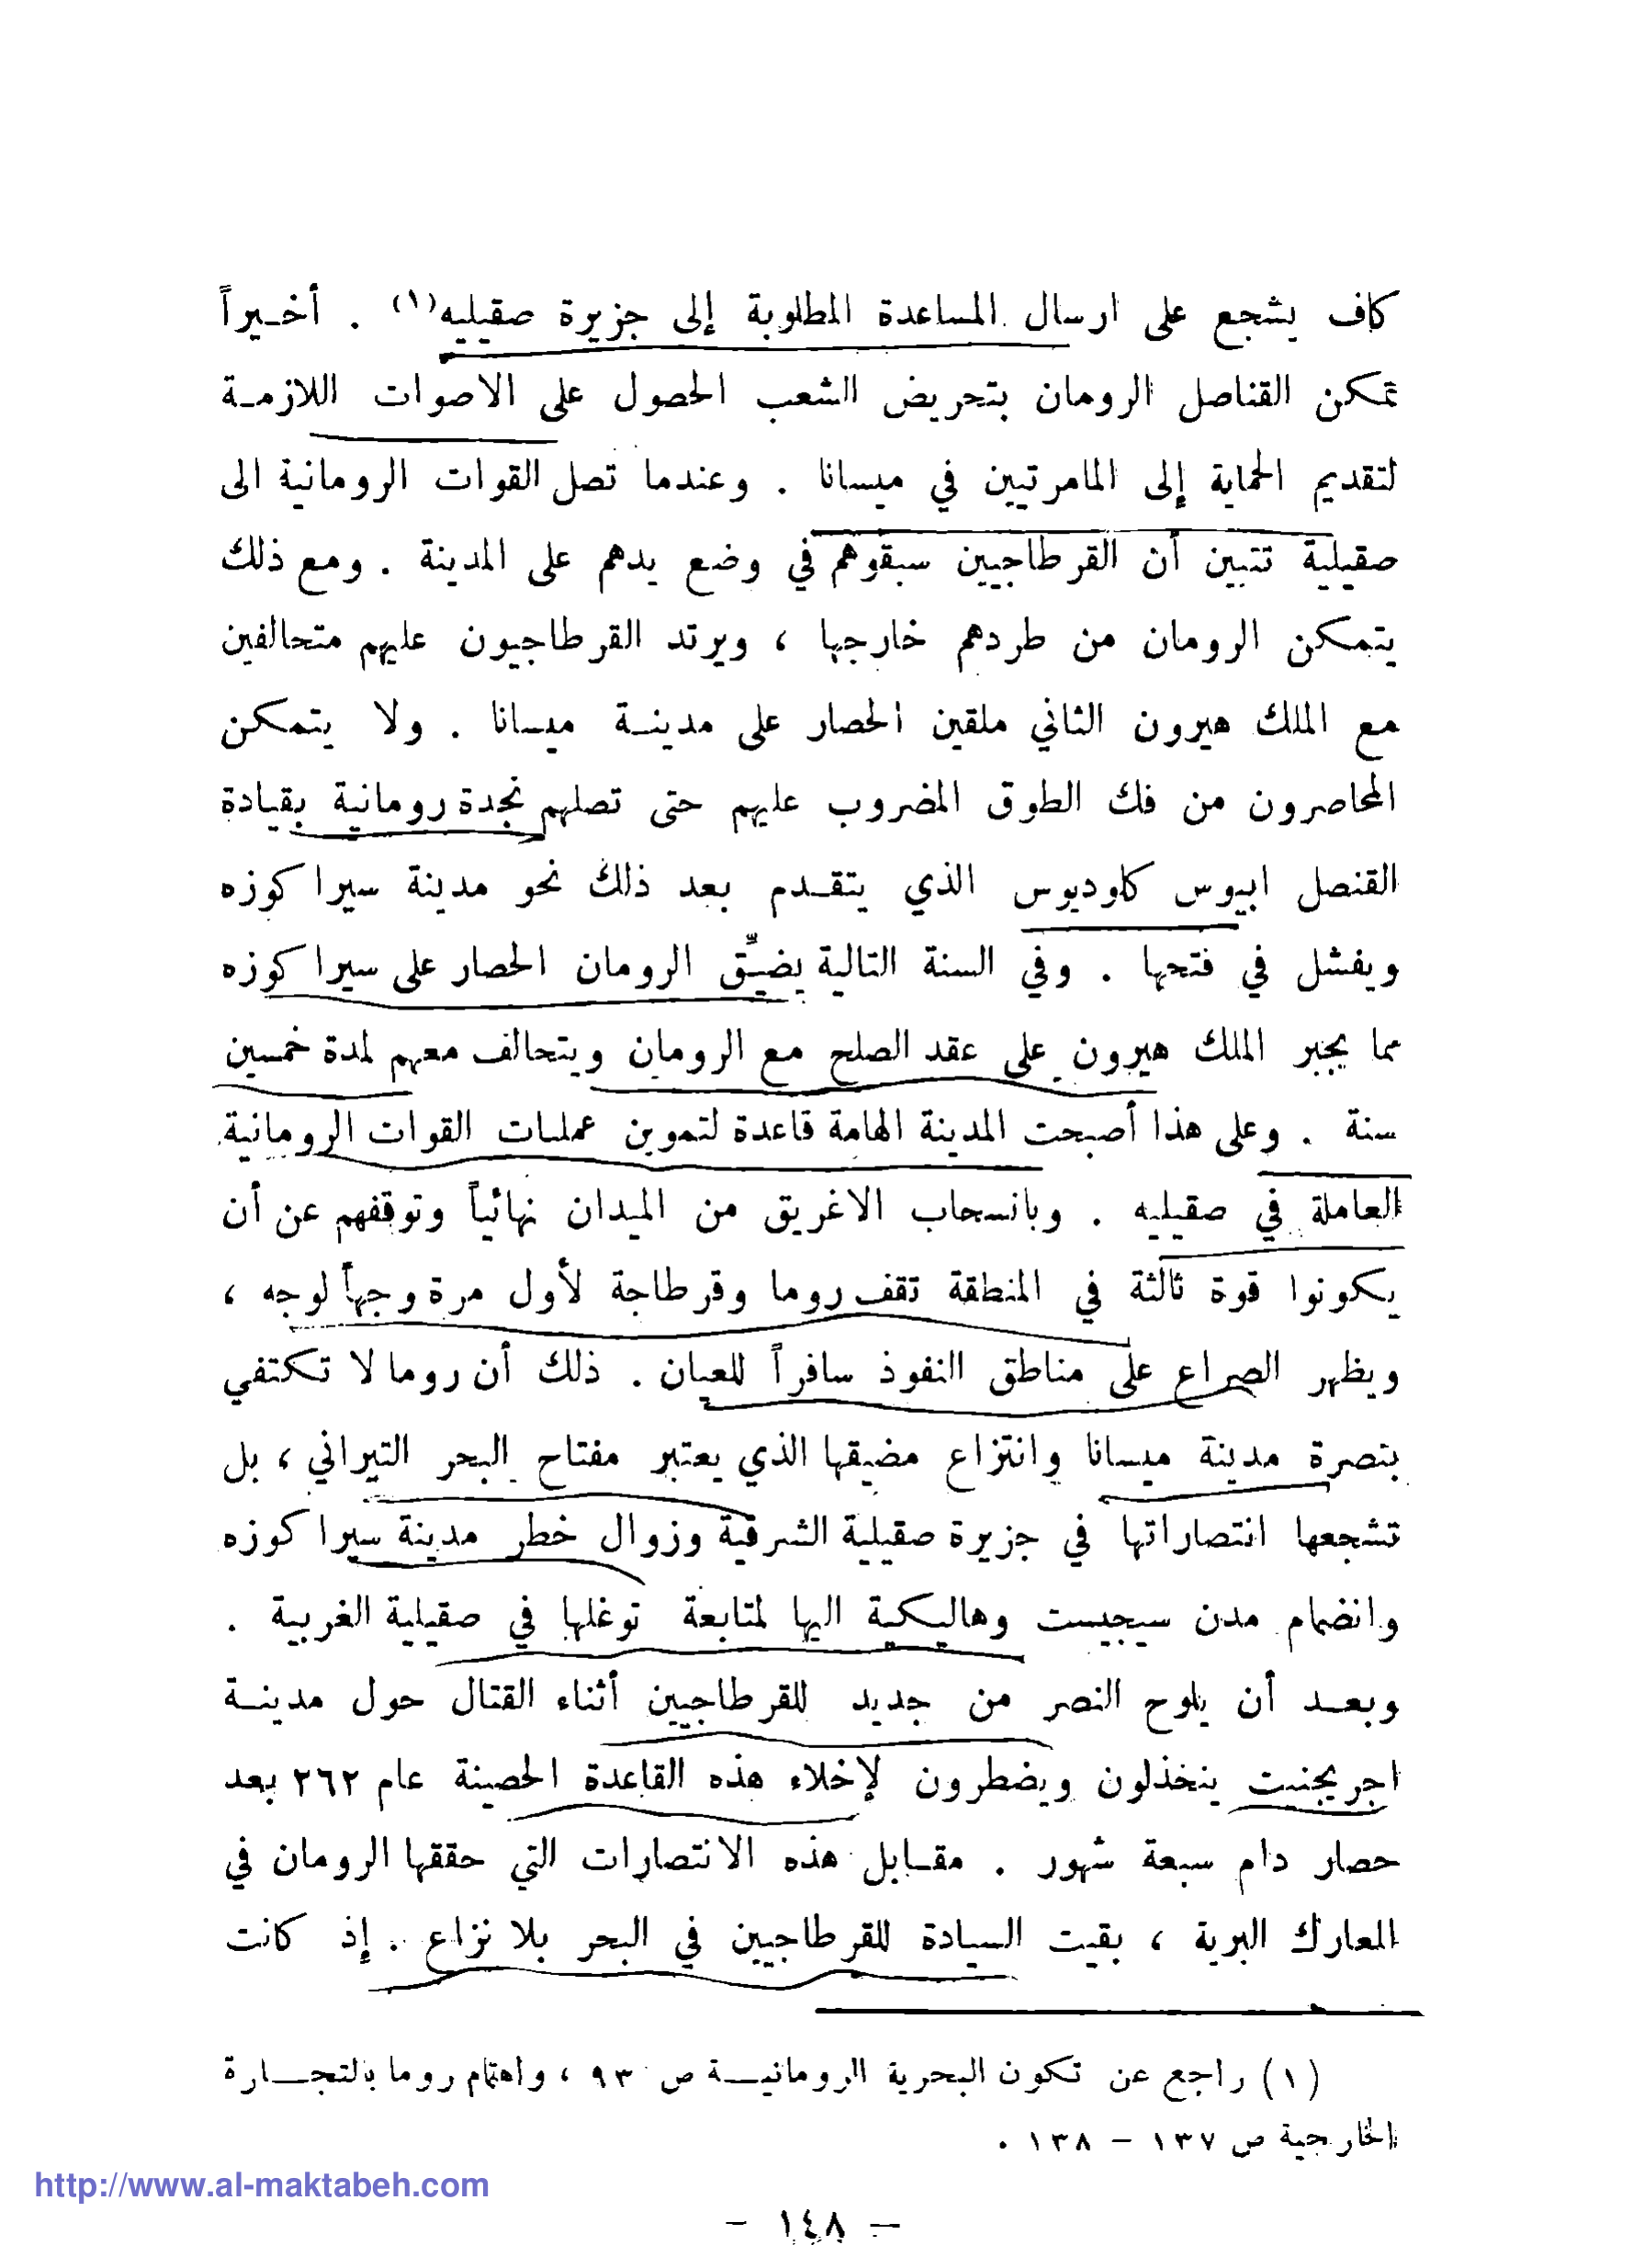 كاف يشجع على ارسال المساعدة المطلوبة إلى جزيرة صقيليه(١) . أخيراً
تمكن القناصل الرومان بتحريض الشعب الحصول على الاصوات اللازمة
لتقديم الحماية إلى المامرتيين في ميسانا . وعندما تصل القوات الرومانية الى
صقيلية تتبين أن القرطاجيين سبقوهم في وضع يدهم على المدينة . ومع ذلك
يتمكن الرومان من طردهم خارجها ، ويرتد القرطاجيون عليهم متحالفين
مع الملك هيرون الثاني ملقين الحصار على مدينة ميسانا . ولا يتمكن
المحاصرون من فك الطوق المضروب عليهم حتى تصلهم نجدة رومانية بقيادة
القنصل ابيوس كلوديوس الذي يتقدم بعد ذلك نحو مدينة سيراكوزه
ويفشل في فتحها . وفي السنة التالية يضيّق الرومان الحصار على سيراكوزه
مما يجبر الملك هيرون على عقد الصلح مع الرومان ويتحالف معهم لمدة خمسين
سنة . وعلى هذا أصبحت المدينة الهامة قاعدة لتموين عمليات القوات الرومانية
العاملة في صقيليه . وبانسحاب الاغريق من الميدان نهائياً وتوقفهم عن أن
يكونوا قوة ثالثة في المنطقة تقف روما وقرطاجة لأول مرة وجهاً لوجه ،
ويظهر الصراع على مناطق النفوذ سافراً للعيان . ذلك أن روما لا تكتفي
بنصرة مدينة ميسانا وانتزاع مضيقها الذي يعتبر مفتاح البحر التيراني ، بل
تشجعها انتصاراتها في جزيرة صقيلية الشرقية وزوال خطر مدينة سيراكوزه
وانضمام مدن سيجيست وهاليكية اليها لمتابعة توغلها في صقيلية الغربية .
وبعد أن يلوح النصر من جديد للقرطاجيين أثناء القتال حول مدينة
اجريجنت ينخذلون ويضطرون لإخلاء هذه القاعدة الحصينة عام ٢٦٢ بعد
حصار دام سبعة شهور . مقابل هذه الانتصارات التي حققها الرومان في
المعارك البرية ، بقيت السيادة للقرطاجيين في البحر بلا نزاع . إذ كانت
(١) راجع عن تكون البحرية الرومانية ص ٩٣ ، واهتمام روما بالتجارة
الخارجية ص ١٣٧ – ١٣٨ .
http://www.al-maktabeh.com
– ١٤٨ –